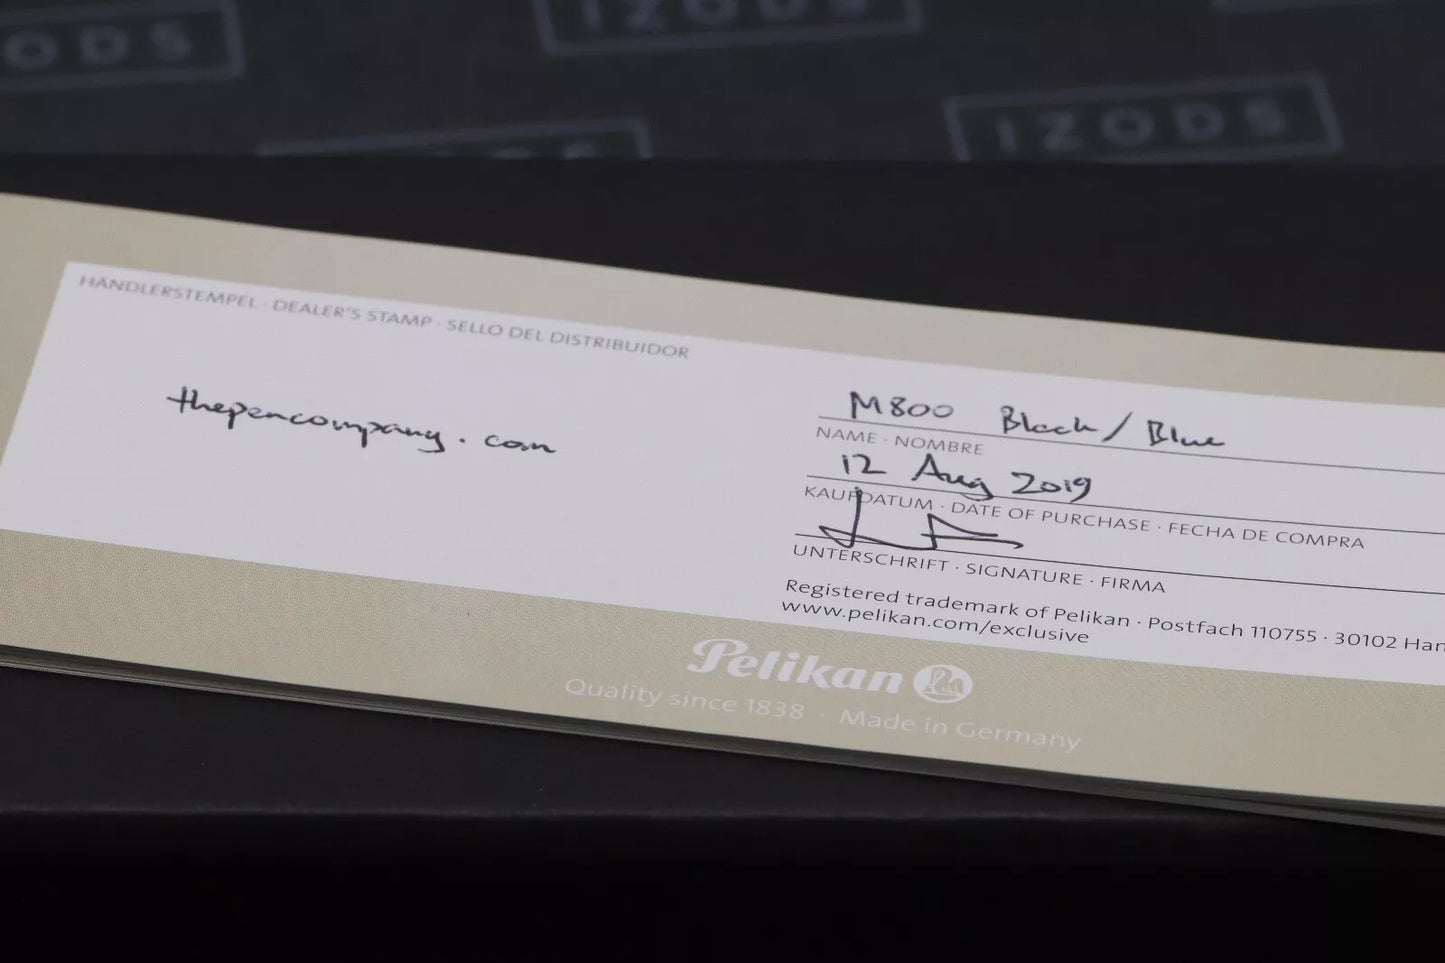 IZODS
IZODS
IZODS
HÄNDLERSTEMPEL · DEALER'S STAMP · SELLO DEL DISTRIBUIDOR
thepencompany.com
M800 Black/Blue
NAME · NOMBRE
12 Aug 2019
KAUFDATUM · DATE OF PURCHASE · FECHA DE COMPRA
UNTERSCHRIFT · SIGNATURE · FIRMA
Registered trademark of Pelikan · Postfach 110755 · 30102 Han
www.pelikan.com/exclusive
Pelikan
Quality since 1838 · Made in Germany